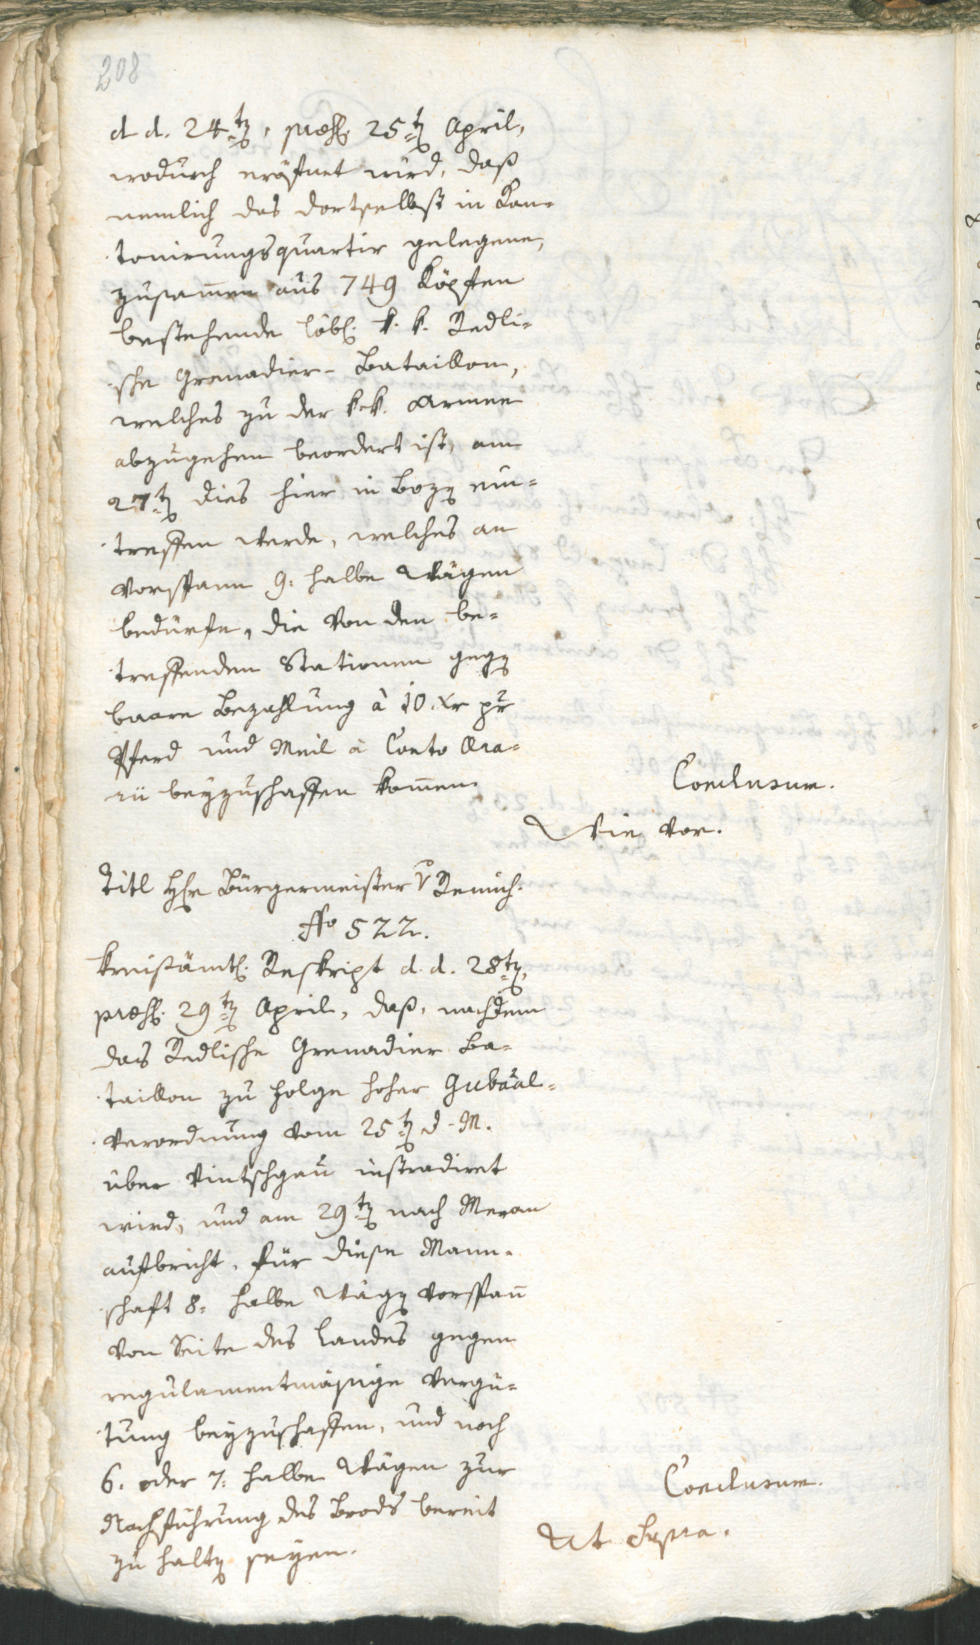 208
d. d. 24t, præs. 25t April,
wodurch eröfnet wird, daß
nemlich das dortselbst in Kan-
tonirungsquartir gelegene,
zusam̄en aus 749 Köpfen
bestehende löbl. k. k. Redli-
sche Grenadier-Bataillon,
welches zu der k. k. Armee
abzugehen beordert ist, am
27t dies hier in Boz ein-
treffen werde, welches an
Vorspann 9. halbe Wägen
bedürfe, die von den be-
treffenden Stationen geg
baare Bezahlung à 10. xr pr
Pferd und Meil à Conto Æra-
rii beyzuschaffen kom̄en.
Conclusum.
Wie vor.
Titl Hr Bürgermeister v Remich.
No 522.
Kreisämtl. Reskript d. d. 28t,
præs. 29t April, daß, nachdem
das Redlische Grenadier Ba-
taillon zu folge hoher Gubāal-
verordnung vom 25t d. M.
über Vintschgau instradiret
wird, und am 29t nach Meran
aufbricht, für diese Mann-
schaft 8. halbe Wäg Vorspan̄
von Seite des Landes gegen
regulamentmäßige Vergü-
tung beyzuschaffen, und noch
6. oder 7. halbe Wägen zur
Nachführung des Brods bereit
zu halt seyen.
Conclusum.
Ut supra.